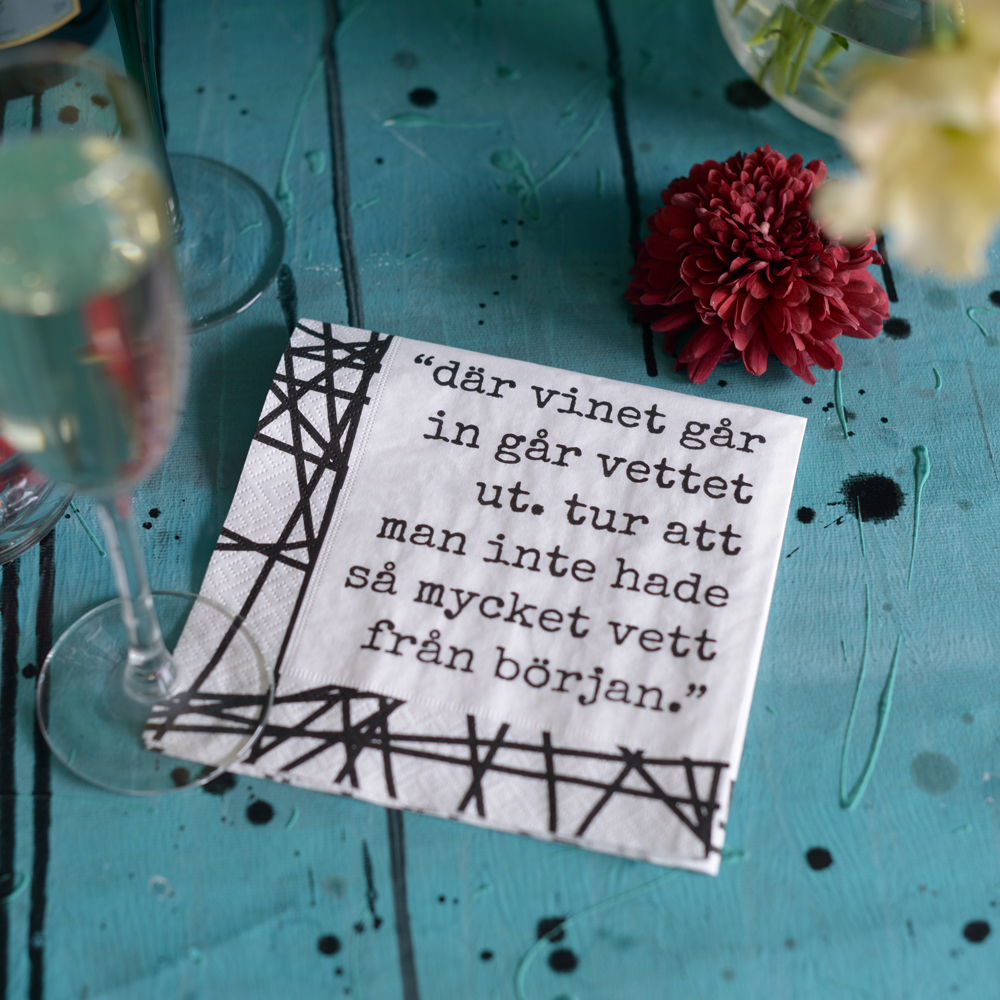 “där vinet går
in går vettet
ut. tur att
man inte hade
så mycket vett
från början.”